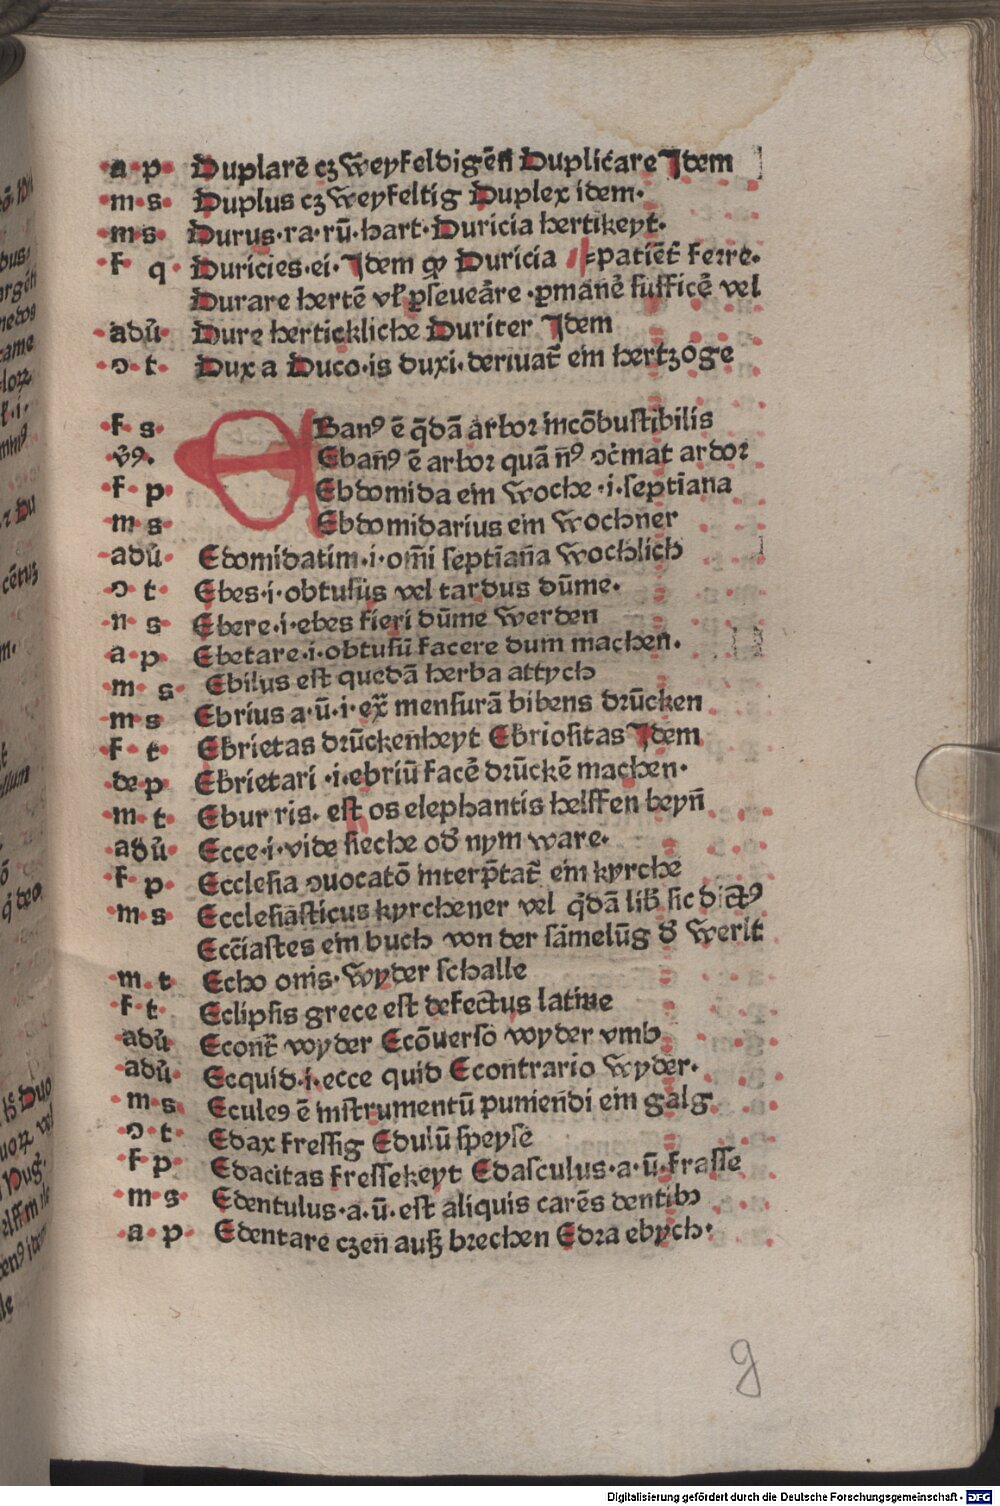 a p Duplarē cz Weyfeldigēn Duplicare Idem
m s Duplus cz Weyfeltig Duplex idem·
m s Durus·ra·rū·hart·Duricia hertikeyt·
f q Duricies·ei·Idem qꝫ Duricia patiēt̄ ferre·
Durare hertē vl̄ ꝑseueāre ·ꝑmanē sufficē vel
adū Dure hertickliche Duriter Idem
ɔ t· Dux a Duco·is duxi·deriuat̄ ein hertzoge
f s EBanꝰ ē q̄dā arbor incōbustibilis
v̄ꝰ· Eban̄ꝰ ē arbor quā n̄ꝰ ɔc̄mat ardor
f p Ebdomida ein Woche ·i·septiana
m s Ebdomidarius ein Wochner
adū Edomidatim·i·om̄i septiana Wochlich
ɔ t Ebes·i·obtusus vel tardus dūme·
n s Ebere·i·ebes fieri dūme Werden
a p Ebetare·i·obtusū facere dum machen·
m s Ebilus est quedā herba attych
m s Ebrius a·ū·i·ex̄ mensurā bibens drūcken
f t Ebrietas drūckenheyt Ebriositas Idem
de p Ebrietari ·i·ebriū facē drūckē machen·
m t Ebur ris· est os elephantis helffen beyn̄
adū Ecce·i·vide sieche od̄ nym ware·
f p Ecclesia ɔuocatō interp̄tat̄ ein kyrche
m s Ecclesiasticus kyrchener vel q̄dā lib̄ sic dictꝰ
Eccīastes ein buch von der sāmelūg d̄ Werlt
m t Echo onis·Wyder schalle
f t Eclipsis grece est defectus latine
adū Econt̄ wyder Ecōuerso wyder vmb
adū Ecquid·i·ecce quid Econtrario Wyder·
m s Eculeꝰ ē instrumentū puniendi ein galg
ɔ t Edax fressig Edulū speyse
f p Edacitas fressekeyt Edasculus·a·ū·frasse
m s Edentulus·a·ū·est aliquis carēs dentibꝫ
a p Edentare czen auß brechen Edra ebych·
g
Digitalisierung gefördert durch die Deutsche Forschungsgemeinschaft - DFG